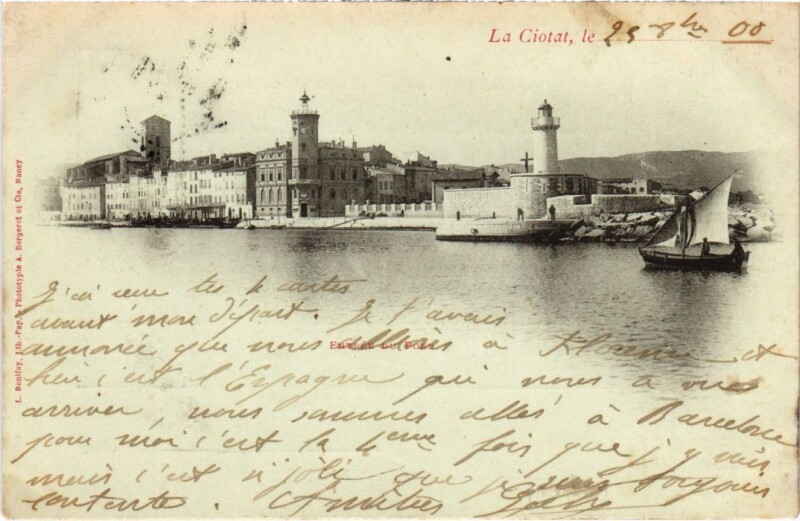 La Ciotat, le 25 8bre 00
L. Bonifay, Lib.-Pap. - Phototypie A. Bergeret et Cie, Nancy
J'ai reçu tes 4 cartes
avant mon départ. Je t'avais
annoncé que nous allions à Florence et
ENTRÉE DU PORT
bien c'est l'Espagne qui nous a vus
arriver, nous sommes allés à Barcelone
pour moi c'est la 4eme fois que j'y vais
mais c'est si joli que j'y suis toujours
contente. Amitiés